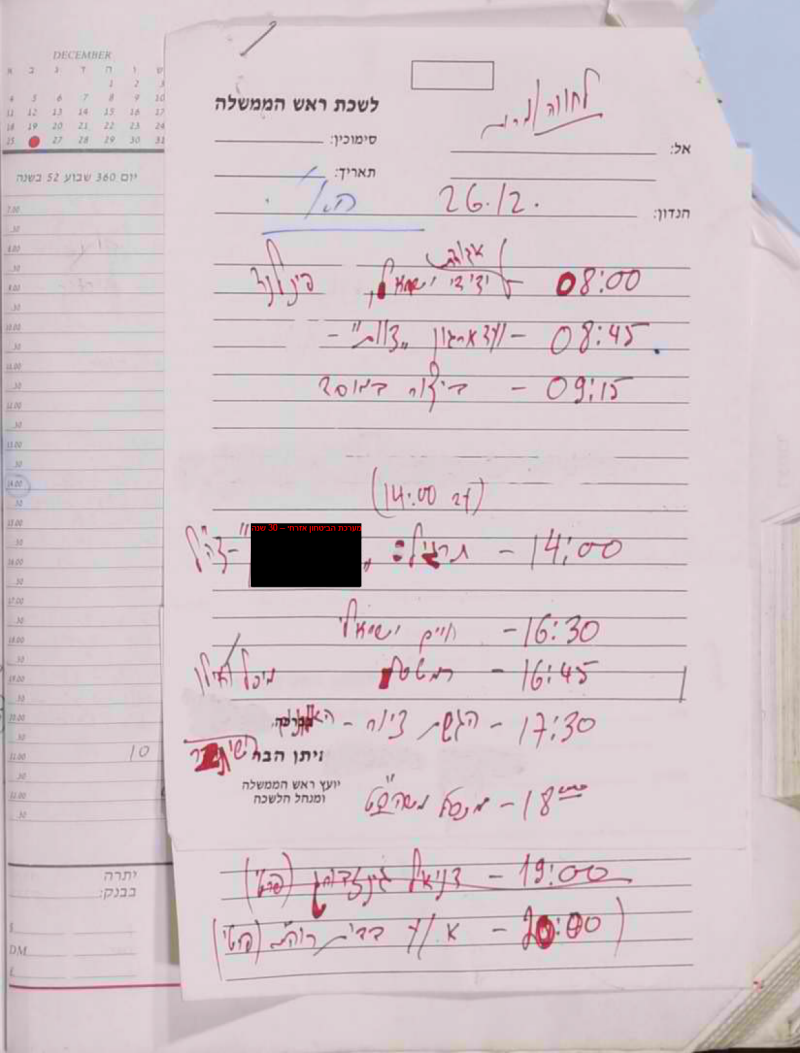 DECEMBER
א ב ג ד ה ו ש
1 2 3
4 5 6 7 8 9 10
11 12 13 14 15 16 17
18 19 20 21 22 23 24
25 27 28 29 30 31
יום 360 שבוע 52 בשנה
לשכת ראש הממשלה
סימוכין:
תאריך:
אל:
הנדון: 26.12.
אגודת
08:00 - ידידי ישראל, פינלנד
08:45 - ועד ארגון "צוות" -
09:15 - ביקור במוסד
(עד 14:00)
מערכת הביטחון אזרחי – 30 שנה
14:00 - תרגיל: " " - צה"ל
16:30 - חיים ישראלי
16:45 - רמטכ"ל
17:30 - הגשת
בברכה,
איתן הבר
יועץ ראש הממשלה
ומנהל הלשכה
18 -
19:00 - דניאל (פרטי)
20:00 - א. ע בבית רוה"מ (פרטי)
7.00
.30
8.00
.30
9.00
.30
10.00
.30
11.00
.30
12.00
.30
13.00
.30
14.00
.30
15.00
.30
16.00
.30
17.00
.30
18.00
.30
19.00
.30
20.00
.30
21.00
.30
22.00
.30
10
יתרה
בבנק:
$
DM
£